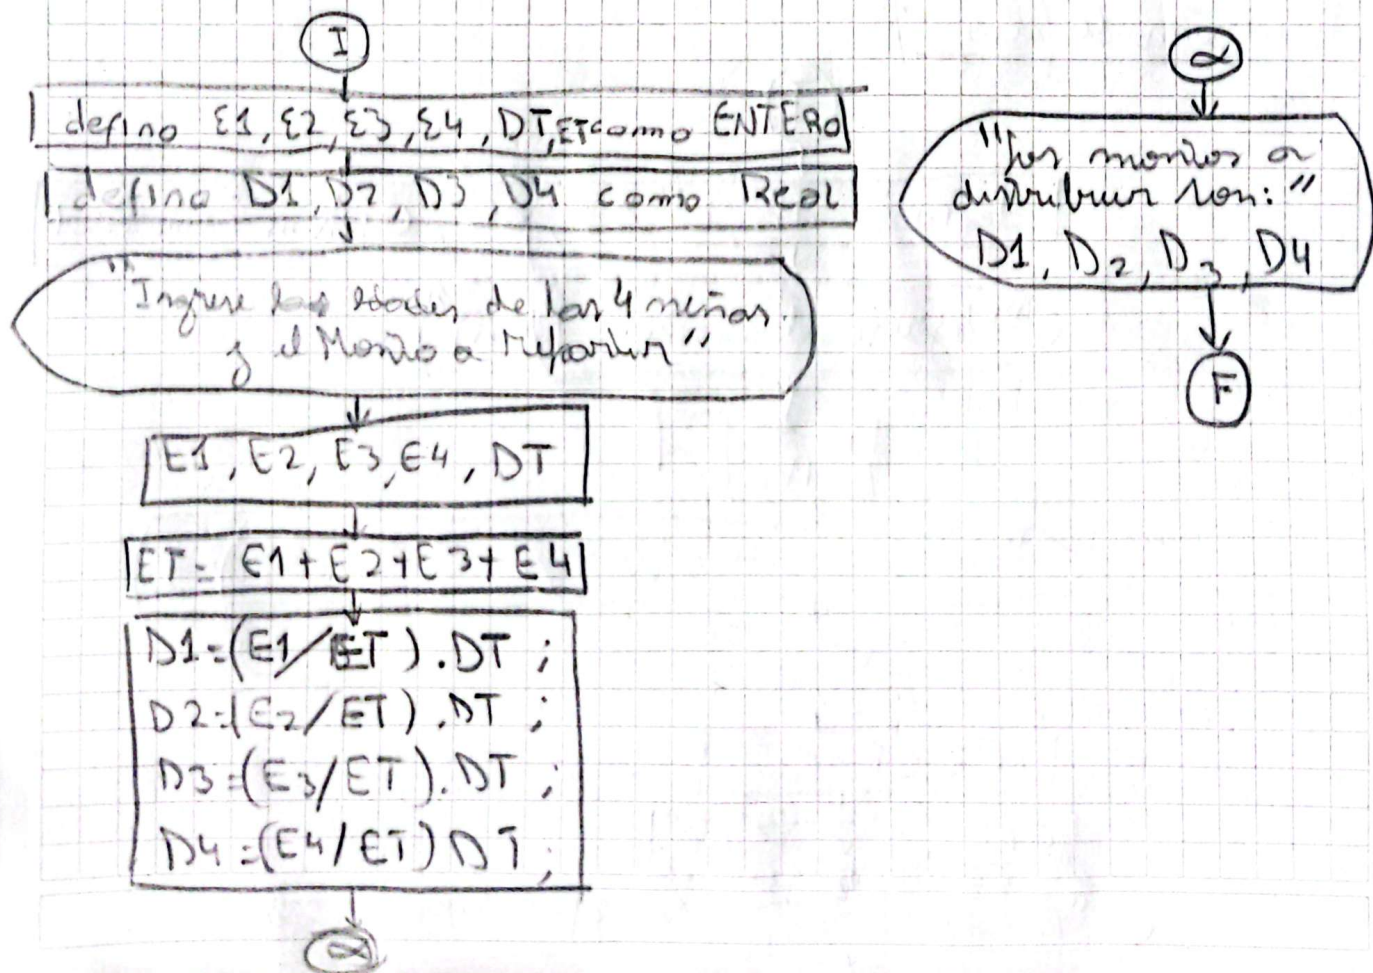 I
defino E1, E2, E3, E4, DT, ET como ENTERO
defino D1, D2, D3, D4 como Real
"Ingrese las edades de las 4 niñas
y el Monto a repartir"
E1, E2, E3, E4, DT
ET= E1+E2+E3+E4
D1=(E1/ET).DT;
D2=(E2/ET).DT;
D3=(E3/ET).DT;
D4=(E4/ET)DT;
α
α
"Los montos a
distribuir son:"
D1, D2, D3, D4
F